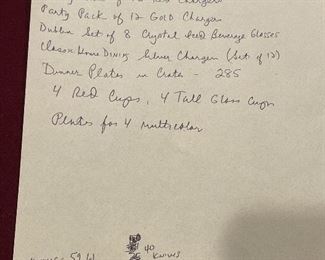 Party Pack of 12 Gold Charger
Dublin Set of 8 Crystal Iced Beverage Glasses
Classic Home Dining Silver Charger (Set of 12)
Dinner Plates in Crate - 285
4 Red Cups, 4 Tall Glass Cups
Plates for 4 multicolor
40
Knives